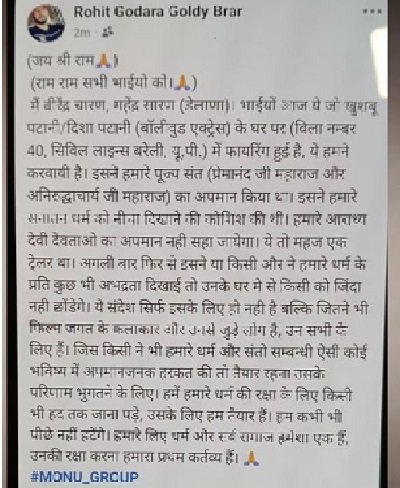 Rohit Godara Goldy Brar
2m
(जय श्री राम🙏)
(राम राम सभी भाईयो को।🙏)
मैं वीरेंद्र चारण, महेंद्र सारण (डेलाणा)। भाईयों आज ये जो खुशबू
पटानी/दिशा पटानी (बॉलीवुड एक्ट्रेस) के घर पर (विला नम्बर
40, सिविल लाइन्स बरेली, यू.पी.) में फायरिंग हुई है, ये हमने
करवायी है। इसने हमारे पूज्य संत (प्रेमानंद जी महाराज और
अनिरुद्धाचार्य जी महाराज) का अपमान किया था। इसने हमारे
सनातन धर्म को नीचा दिखाने की कोशिश की थी। हमारे आराध्य
देवी देवताओ का अपमान नही सहा जायेगा। ये तो महज एक
ट्रेलर था। अगली बार फिर से इसने या किसी और ने हमारे धर्म के
प्रति कुछ भी अभद्रता दिखाई तो उनके घर मे से किसी को जिंदा
नही छोडेंगे। ये संदेश सिर्फ इसके लिए ही नही है बल्कि जितने भी
फिल्म जगत के कलाकार और उनसे जुड़े लोग है, उन सभी के
लिए हैं। जिस किसी ने भी हमारे धर्म और संतो सम्बन्धी ऐसी कोई
भविष्य में अपमानजनक हरकत की तो तैयार रहना उसके
परिणाम भुगतने के लिए। हमें हमारे धर्म की रक्षा के लिए किसी
भी हद तक जाना पड़े, उसके लिए हम तैयार हैं। हम कभी भी
पीछे नहीं हटेंगे। हमारे लिए धर्म और सर्व समाज हमेशा एक हैं,
उनकी रक्षा करना हमारा प्रथम कर्तव्य हैं। 🙏
#MONU_GROUP